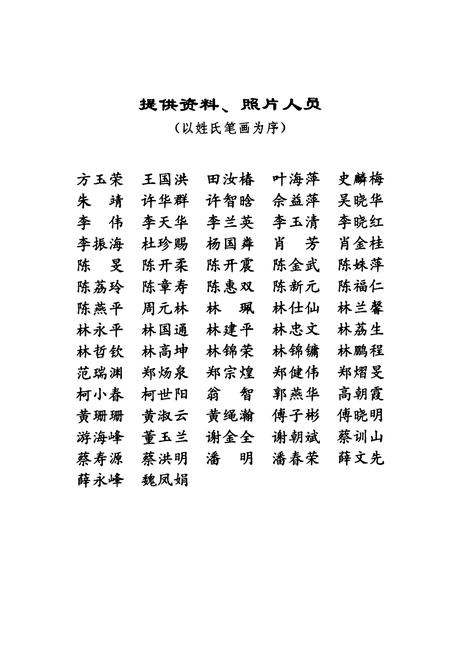 提供资料、照片人员
(以姓氏笔画为序)
方玉荣 王国洪 田汝椿 叶海萍 史麟梅
朱 靖 许华群 许智晗 佘益萍 吴晓华
李 伟 李天华 李兰英 李玉清 李晓红
李振海 杜珍赐 杨国舜 肖 芳 肖金桂
陈 旻 陈开柔 陈开震 陈金武 陈姝萍
陈荔玲 陈章寿 陈惠双 陈新元 陈福仁
陈燕平 周元林 林 珮 林仕仙 林兰馨
林永平 林国通 林建平 林忠文 林荔生
林哲钦 林高坤 林锦荣 林锦镛 林鹏程
范瑞渊 郑炀泉 郑宗煌 郑健伟 郑熠旻
柯小春 柯世阳 翁 智 郭燕华 高朝霞
黄珊珊 黄淑云 黄绳瀚 傅子彬 傅晓明
游海峰 董玉兰 谢金全 谢朝斌 蔡训山
蔡寿源 蔡洪明 潘 明 潘春荣 薛文先
薛永峰 魏凤娟